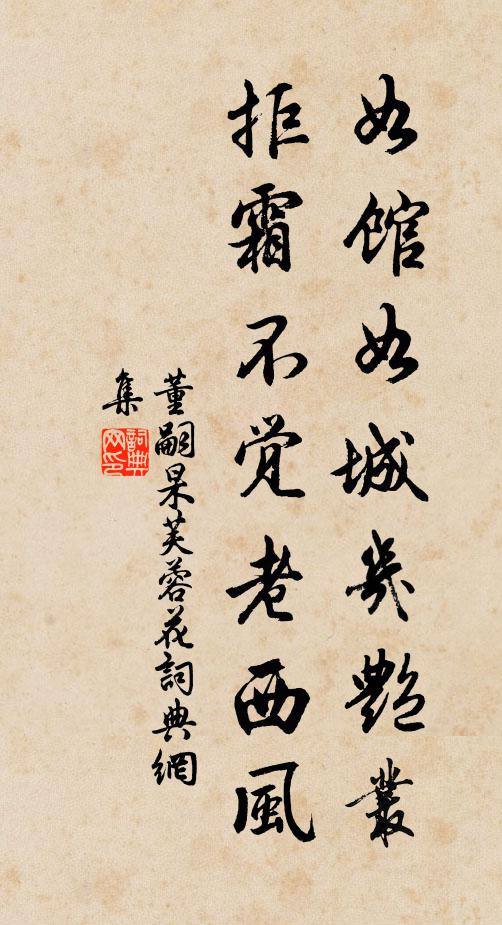 如館如城幾艷叢
拒霜不覺老西風
董嗣杲芙蓉花詞典網
集
詞典
网印